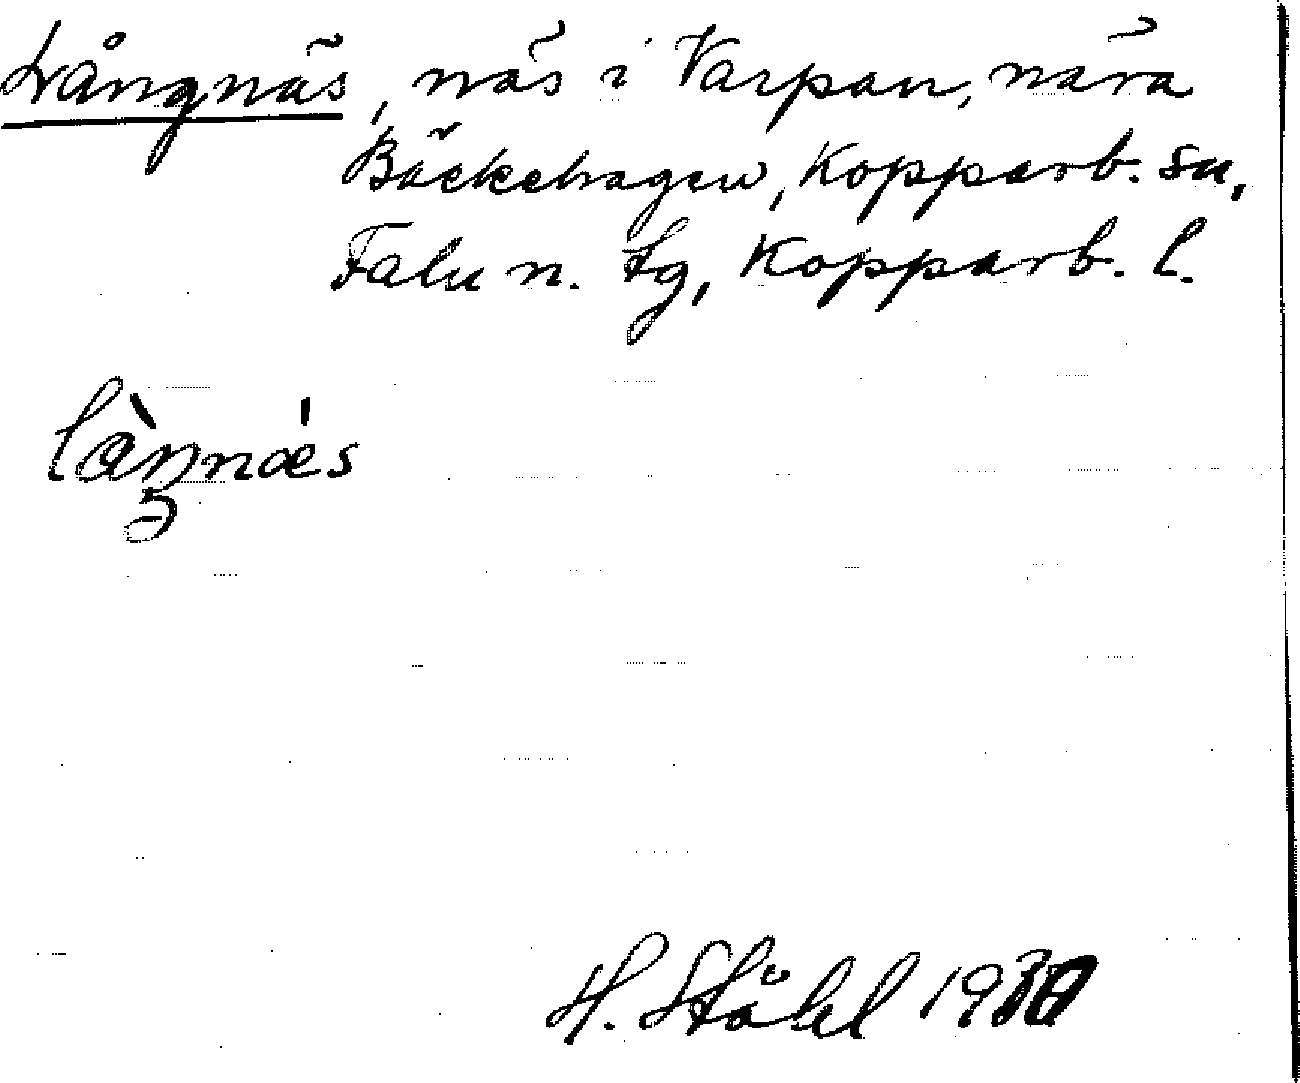 Långnäs, näs i Varpan, nära
Bäckehagen, Kopparb. sn,
Falu n. tg, Kopparb. l.
H. Ståhl 1930